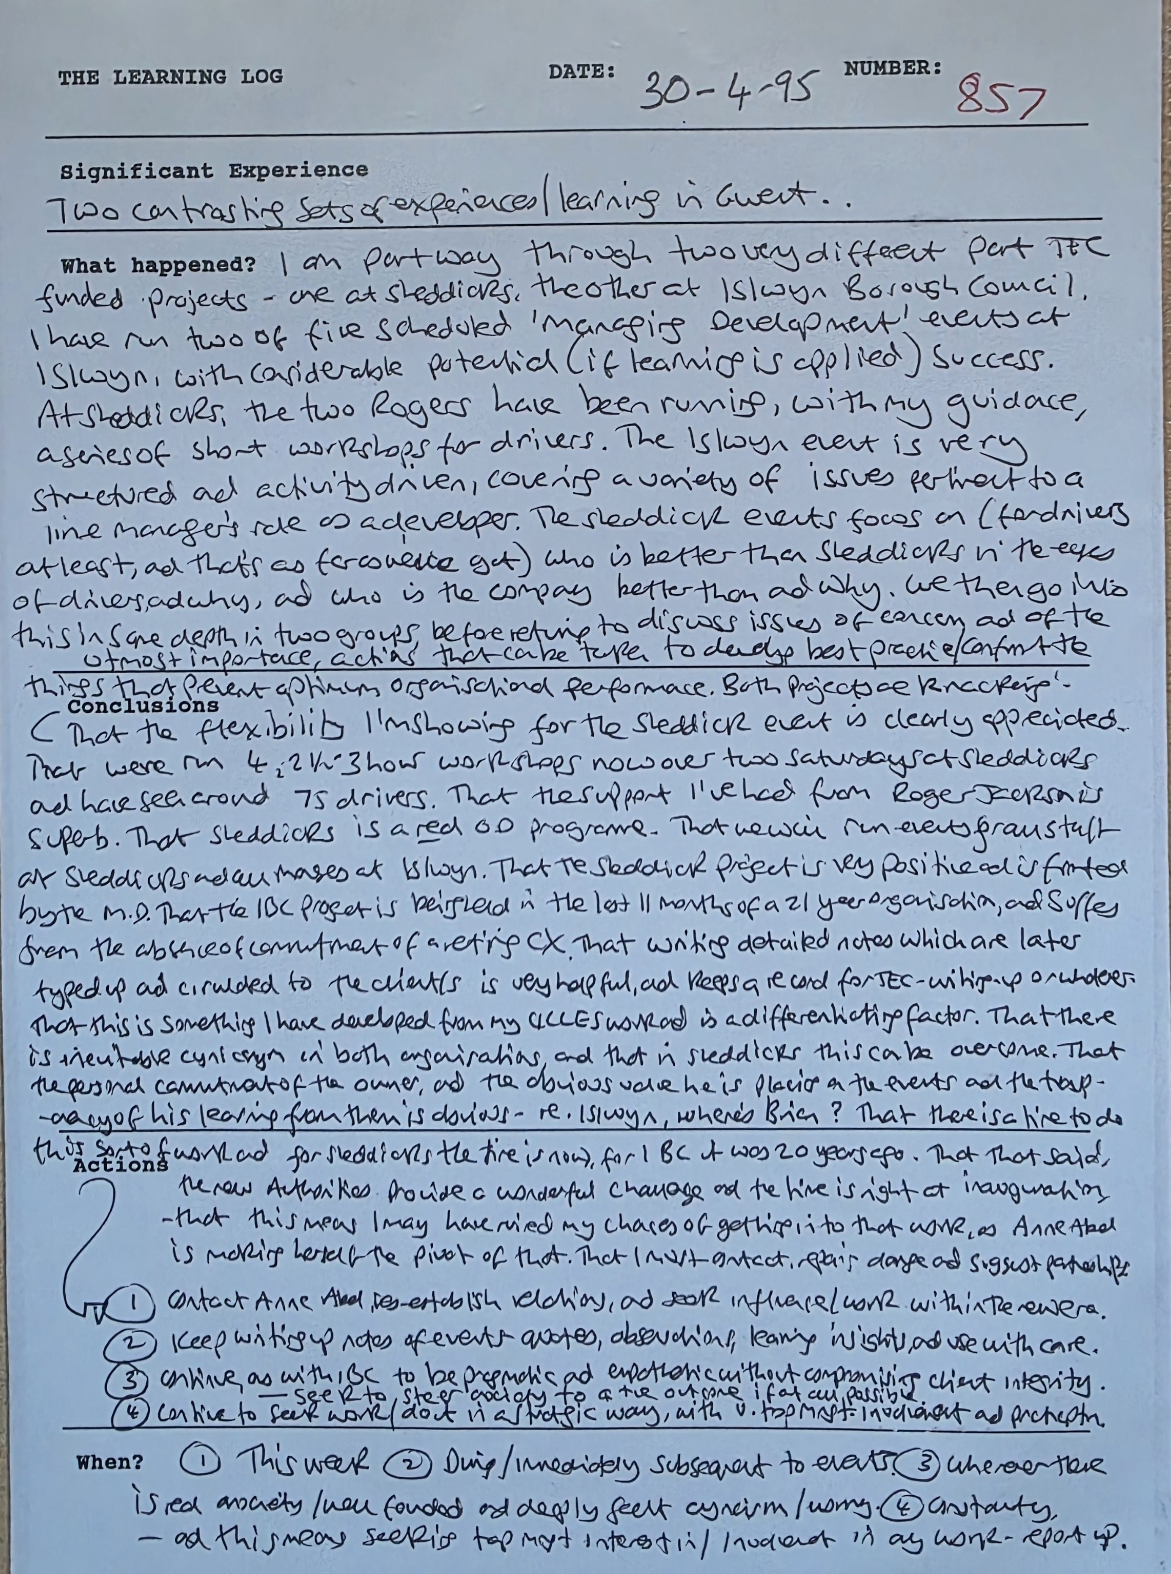 THE LEARNING LOG DATE: 30-4-95 NUMBER: 857
Significant Experience
Two contrasting sets of experiences/learning in Gwent..
What happened? I am part way through two very different part TEC
funded projects - one at Sleddicks, the other at Islwyn Borough Council.
I have run two of five scheduled 'Managing Development' events at
Islwyn, with considerable potential (if learning is applied) success.
At Sleddicks, the two Rogers have been running, with my guidance,
a series of short workshops for drivers. The Islwyn event is very
structured and activity driven, covering a variety of issues pertinent to a
line manager's role as a developer. The Sleddick events focus on (for drivers
at least, and that's as far as we've got) who is better than Sleddicks in the eyes
of drivers, and why, and who is the company better than and why. We then go into
this in some depth in two groups, before returning to discuss issues of concern, and of the
utmost importance, actions that can be taken to develop best practice/confront the
things that prevent optimum organisational performance. Both projects are knackering!-
Conclusions
That the flexibility I'm showing for the Sleddick event is clearly appreciated.
That we've run 4, 2½-3 hour workshops now over two Saturdays at Sleddicks
and have seen around 75 drivers. That the support I've had from Roger Jackson is
superb. That Sleddicks is a real OD programme. That we will run events for all staff
at Sleddicks and all managers at Islwyn. That the Sleddick project is very positive and is fronted
by the M.D. That the IBC project is being held in the last 11 months of a 21 year organisation, and suffers
from the absence of commitment of a retiring CX. That writing detailed notes which are later
typed up and circulated to the client/s is very helpful, and keeps a record for TEC - writing-up or whatever.
That this is something I have developed from my work and is a differentiating factor. That there
is inevitable cynicism in both organisations, and that in Sleddicks this can be overcome. That
the personal commitment of the owner, and the obvious value he is placing on the events and the transp-
-arency of his learning from them is obvious - re. Islwyn, where's Brian? That there is a time to do
this sort of work and for Sleddicks the time is now, for IBC it was 20 years ago. That that said,
Actions
the new Authorities provide a wonderful challenge and the time is right at inauguration
- that this means I may have ruined my chances of getting into that work, as Anne Abel
is making herself the pivot of that. That I must contact, repair damage and suggest partnership
① Contact Anne Abel, re-establish relations, and seek influence/work within the new era.
② Keep writing up notes of events quotes, observations, learning insights, and use with care.
③ Continue, as with IBC to be pragmatic and empathetic without compromising client integrity.
— seek to steer anxiety to a +ve outcome if at all possible.
④ Continue to seek work/do it in a strategic way, with v. top mgt. involvement and participation.
When? ① This week ② During/immediately subsequent to events. ③ Wherever there
is real anxiety/well founded and deeply felt cynicism/worry. ④ Constantly,
— and this means seeking top mgt interest in/involvement in any work - report up.